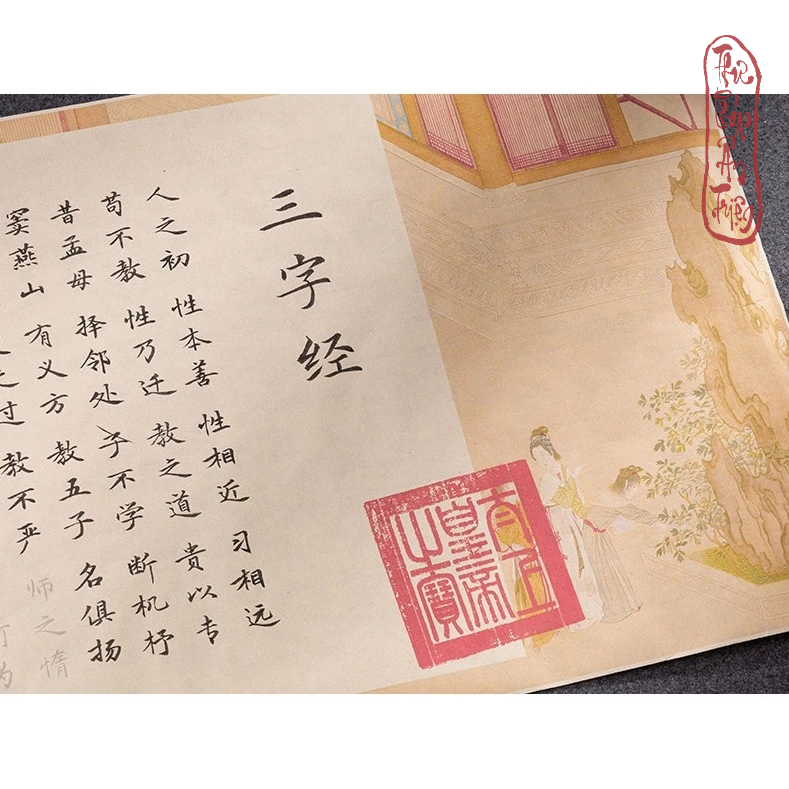 三字经
人之初 性本善 性相近 习相远
苟不教 性乃迁 教之道 贵以专
昔孟母 择邻处 子不学 断机杼
窦燕山 有义方 教五子 名俱扬
之过 教不严 师之惰
何为
太上
皇帝
之寶